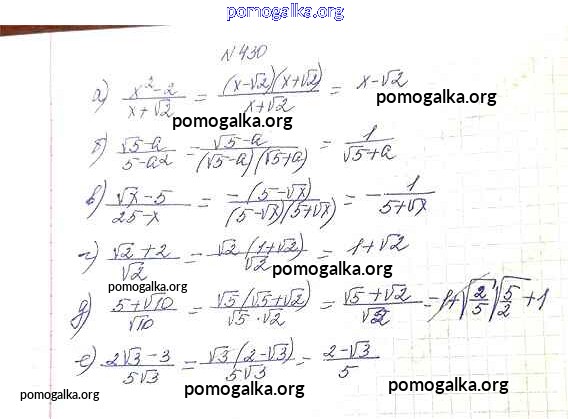 pomogalka.org
N 430
а) (x² - 2)/(x + √2) = (x - √2)(x + √2)/(x + √2) = x - √2
pomogalka.org pomogalka.org
б) (√5 - a)/(5 - a²) = (√5 - a)/((√5 - a)(√5 + a)) = 1/(√5 + a)
pomogalka.org
в) (√x - 5)/(25 - x) = -(5 - √x)/((5 - √x)(5 + √x)) = - 1/(5 + √x)
г) (√2 + 2)/√2 = √2(1 + √2)/√2 = 1 + √2
pomogalka.org pomogalka.org
д) (5 + √10)/√10 = √5(√5 + √2)/(√5 · √2) = (√5 + √2)/√2 = √(5/2) + 1
pomogalka.org
е) (2√3 - 3)/(5√3) = √3(2 - √3)/(5√3) = (2 - √3)/5
pomogalka.org pomogalka.org pomogalka.org